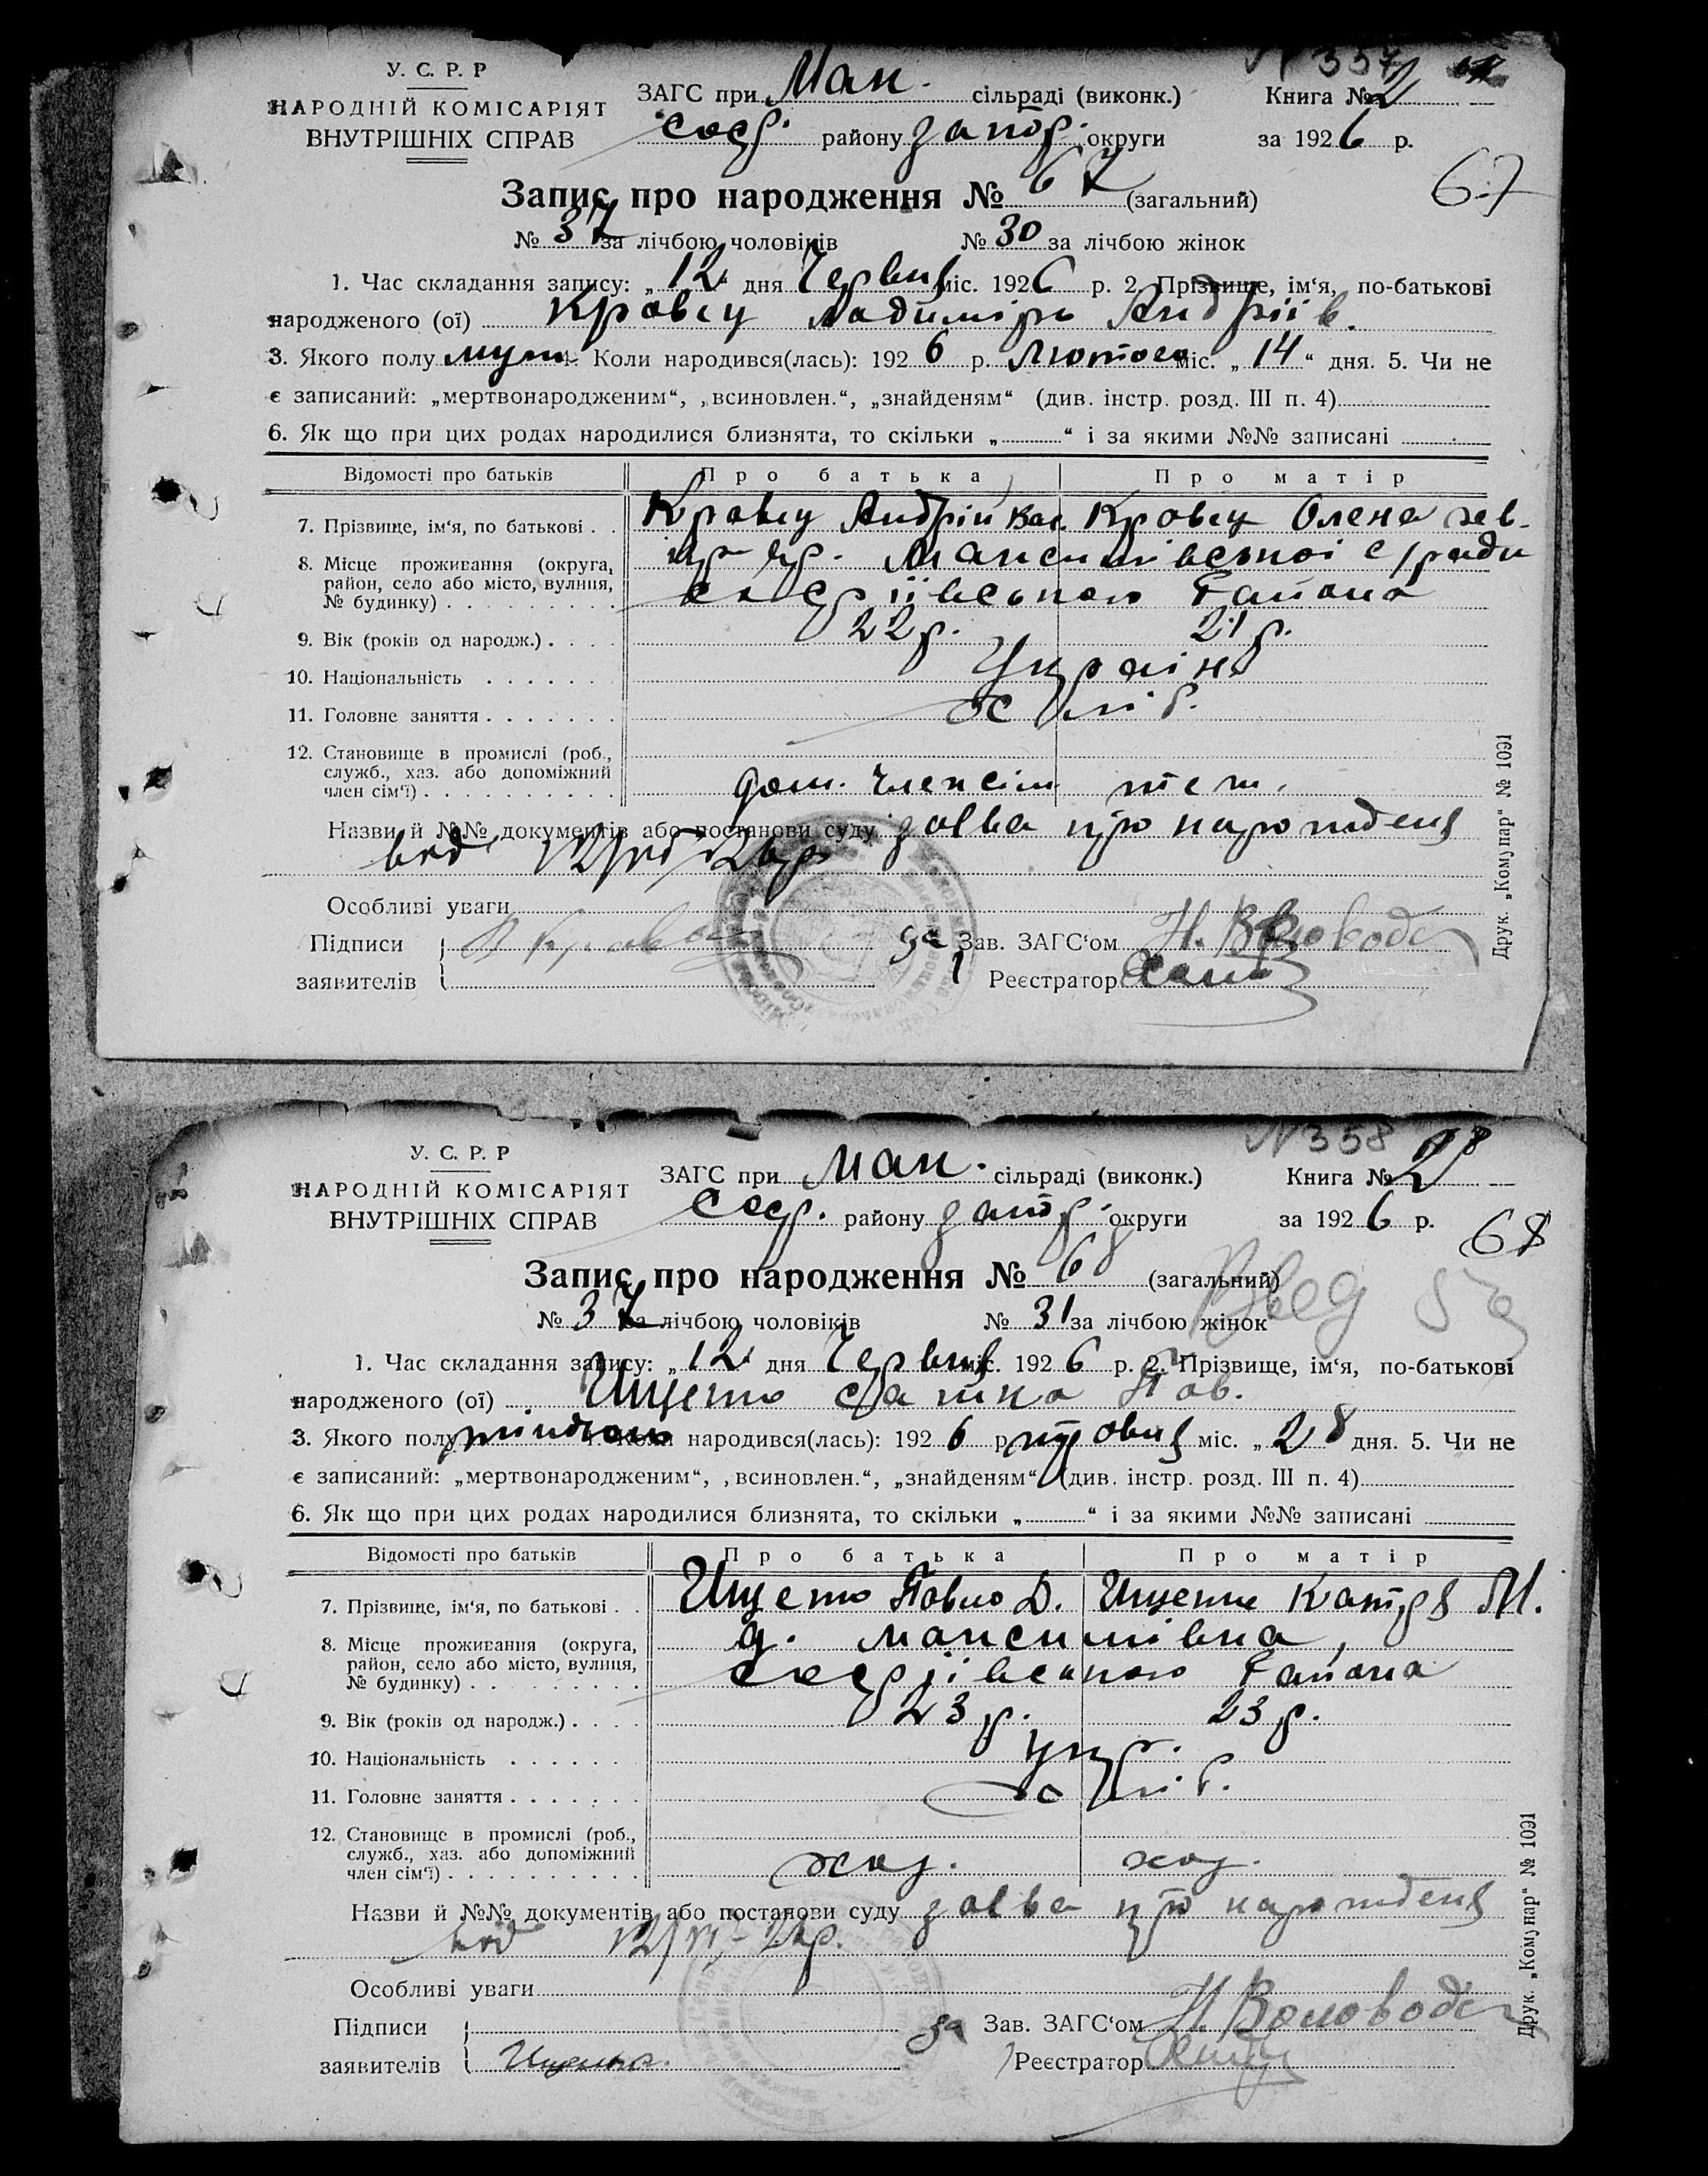 № 357
У. С. Р. Р
НАРОДНІЙ КОМІСАРІЯТ
ВНУТРІШНІХ СПРАВ
ЗАГС при Мак. сільраді (виконк.)
району Запор. округи
Книга № 2
за 1926 р.
67
Запис про народження № 67 (загальний)
№ 37 за лічбою чоловіків № 30 за лічбою жінок
1. Час складання запису: „12“ дня Червня міс. 1926 р. 2. Прізвище, ім‘я, по-батькові
народженого (ої) Кравец Ладимірь Андріів.
3. Якого полу муж. 4. Коли народився(лась): 1926 р. Лютого міс. „14“ дня. 5. Чи не
є записаний: „мертвонародженим“, „всиновлен.“, „знайденям“ (див. інстр. розд. III п. 4)
6. Як що при цих родах народилися близнята, то скільки „ “ і за якими №№ записані
Відомості про батьків Про батька Про матір
7. Прізвище, ім‘я, по батькові . . Кравец Андрій Вас. Кровец Олена
8. Місце проживання (округа, район, село або місто, вулиця, № будинку) Максимівської с/ради
Району
9. Вік (років од народж.) . . . . 22 р. 21 р.
10. Національність . . . . . . . Україн
11. Головне заняття . . . . . . . хліб.
12. Становище в промислі (роб., служб., хаз. або допоміжний член сім‘ї) . . . . . . . . . . дом. член сім теж.
Назви й №№ документів або постанови суду заява про народженя
від 12/VI 26 р
Особливі уваги
Підписи
заявителів
за Зав. ЗАГС‘ом Н. Воловод
Реєстратор
Друк. „Комунар“ № 1091
№ 358
У. С. Р. Р
НАРОДНІЙ КОМІСАРІЯТ
ВНУТРІШНІХ СПРАВ
ЗАГС при Мак. сільраді (виконк.)
району Запор. округи
Книга № 2
за 1926 р.
68
Запис про народження № 68 (загальний)
№ 37 за лічбою чоловіків № 31 за лічбою жінок
1. Час складання запису: „12“ дня Червня міс. 1926 р. 2. Прізвище, ім‘я, по-батькові
народженого (ої) Ищенко Пав.
3. Якого полу жіночого 4. Коли народився(лась): 1926 р. травня міс. „28 дня. 5. Чи не
є записаний: „мертвонародженим“, „всиновлен.“, „знайденям“ (див. інстр. розд. III п. 4)
6. Як що при цих родах народилися близнята, то скільки „ “ і за якими №№ записані
Відомості про батьків Про батька Про матір
7. Прізвище, ім‘я, по батькові . . Ищенко Павло Д. Ищенко Катря М.
8. Місце проживання (округа, район, село або місто, вулиця, № будинку) Максимівка,
Району
9. Вік (років од народж.) . . . . 23 р. 23 р.
10. Національність . . . . . . укр.
11. Головне заняття . . . . . . . хліб.
12. Становище в промислі (роб., служб., хаз. або допоміжний член сім‘ї) . . . . . . . . . . хаз. хаз.
Назви й №№ документів або постанови суду заява про народженя
від 12/VI - 26 р.
Особливі уваги
Підписи
заявителів Ищенко.
за Зав. ЗАГС‘ом Н. Воловод
Реєстратор
Друк. „Комунар“ № 1091